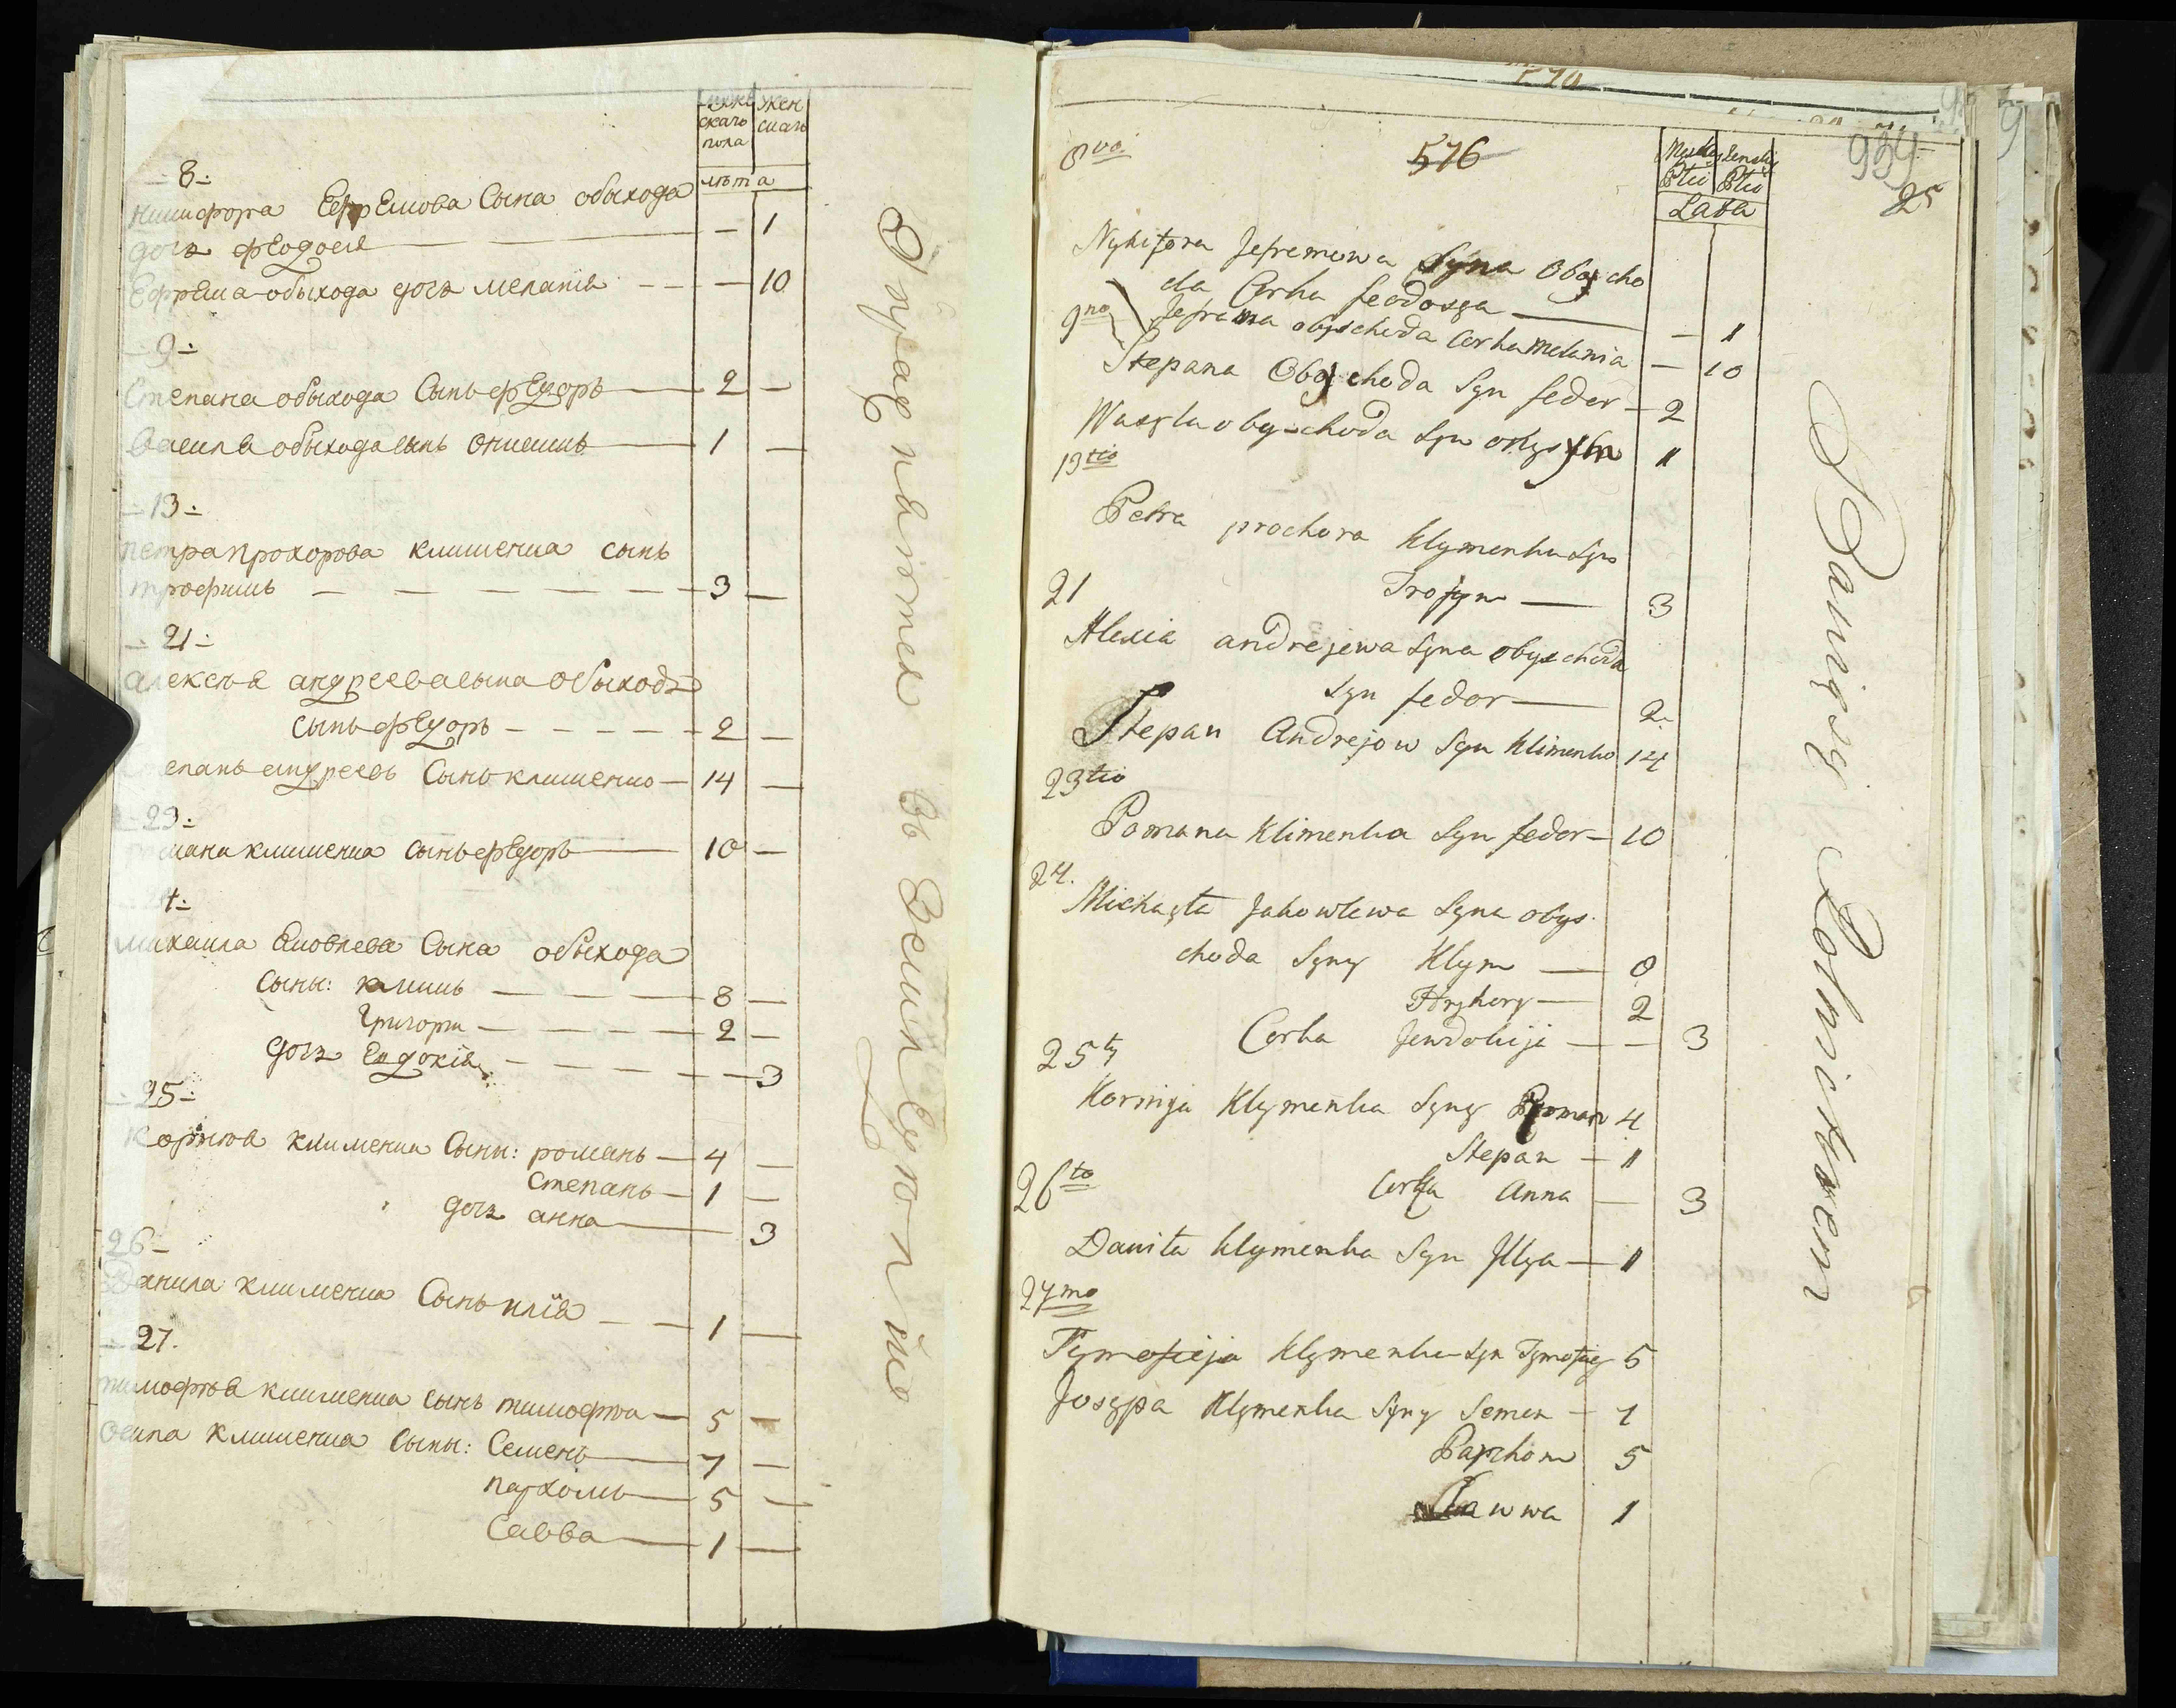 скаго скаго
пола
лѣта
8
Никифора Ефремова Сына обыхода
дочь феодосія — 1
Ефрема обыхода дочь меланія — 10
9
Степана обыхода Сынъ федоръ — 2 —
Василя обыхода сынъ онисимъ — 1 —
13
петра прохорова клименка сынъ
трофимъ — 3 —
21
алексѣя андреева сына обыхода
сынъ федоръ — 2 —
степанъ андреевъ Сынъ клименко — 14 —
23
романа клименка сынъ федоръ — 10 —
24
михаила Яковлева Сына обыхода
сыны: климъ — 8 —
Григори — 2 —
дочь Евдокія — 3
25
Корнѣя клименка Сыны: романъ — 4 —
Степанъ — 1 —
дочь анна — 3
26
Данила клименка Сынъ илія — 1 —
27.
тимофѣя клименка сынъ тимофѣи — 5 —
осипа клименка Сыны: Семенъ — 7 —
пархомъ — 5 —
Савва — 1 —
Упражняются въ Земледеліи
570
8vo
576
934
25
Płci Płci
Lata
Nykifora Jefremowa Syna Obyscho
da Corka feodosya — 1
9no Jefrema obyschoda Corka Melania — 10
Stepana Obyschoda Syn fedor — 2
Wasyla obyschoda Syn onysym 1
13tio
Petra prochora Klymenka Syn
Trofym — 3
21
Alexia andrejewa Syna obyschoda
Syn fedor — 2
Stepan Andrejow Syn Klimenko 14
23tio
Romana Klimenka Syn fedor — 10
24.
Michayła Jakowlewa Syna obys
choda Syny Klym — 8
Hryhory — 2
Corka Jewdokija — — 3
25ty
Kornija Klymenka Syny Roman 4
Stepan — 1
Corka Anna — 3
26to
Daniła Klymenka Syn Jlya — 1
27mo
Tymofieja Klymenka Syn Tymofiey 5
Josypa Klymenka Syny Semen — 7
Parchom 5
Sawwa 1
Baniosy Rolnictwem